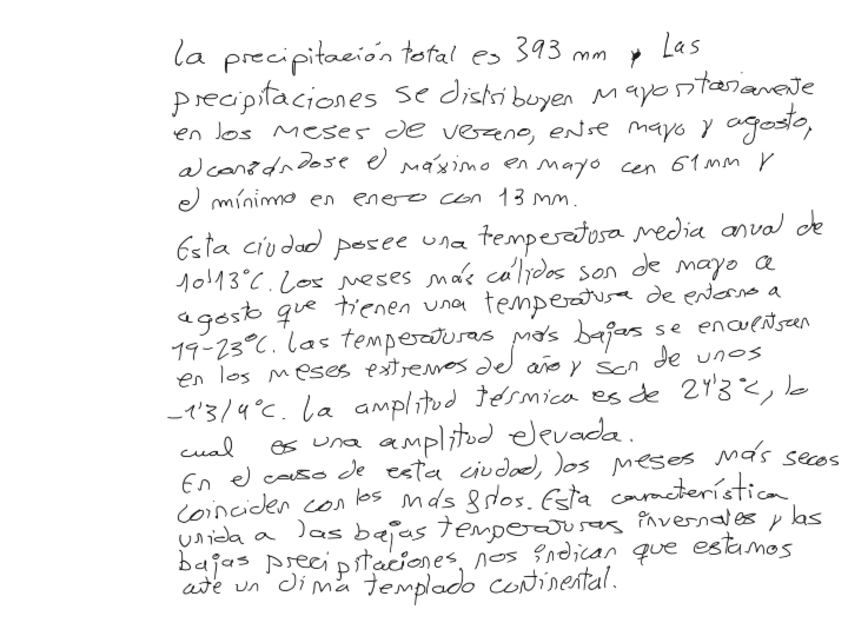 La precipitación total es 393 mm y Las
precipitaciones se distribuyen mayoritariamente
en los meses de verano, entre mayo y agosto,
alcanzándose el máximo en mayo con 61 mm y
el mínimo en enero con 13 mm.
Esta ciudad posee una temperatura media anual de
10'13°C. Los meses más cálidos son de mayo a
agosto que tienen una temperatura de entorno a
19-23°C. Las temperaturas más bajas se encuentran
en los meses extremos del año y son de unos
-1'3/4°C. La amplitud térmica es de 24'3°C, lo
cual es una amplitud elevada.
En el caso de esta ciudad, los meses más secos
coinciden con los más fríos. Esta característica
unida a las bajas temperaturas invernales y las
bajas precipitaciones nos indican que estamos
ante un clima templado continental.